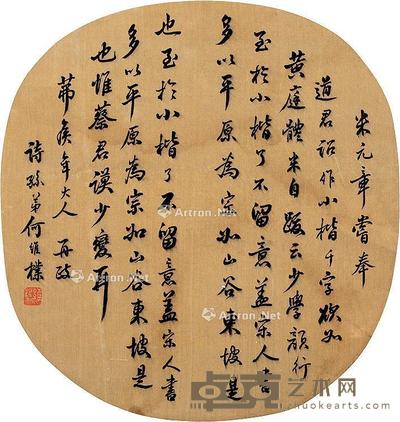 米元章嘗奉
道君詔作小楷千字欲如
黃庭體米自跋云少學顏行
至於小楷了不留意蓋宋人書
多以平原為宗如山谷東坡是
也至於小楷了不留意蓋宋人書
多以平原為宗如山谷東坡是
也惟蔡君謨少變耳
年大人 再政
詩孫弟何維樸
Artron.Net
Artron.Net
Artron.Net
Artron.Net
卓克艺术网
zhuokearts.com